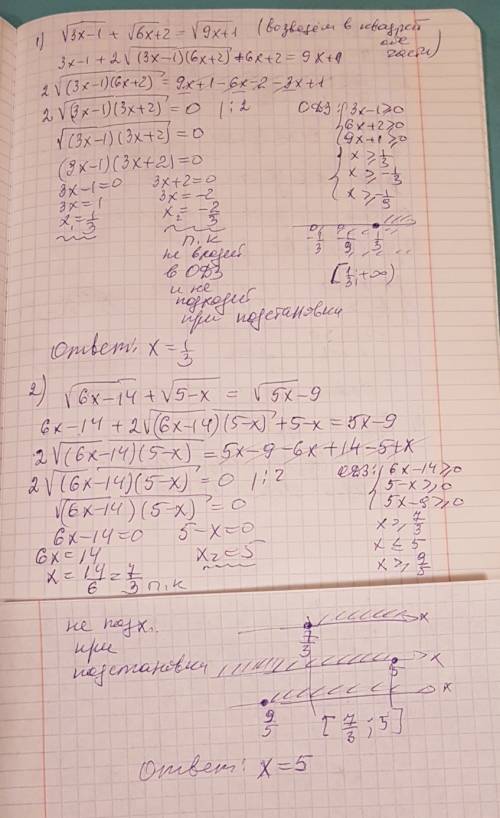 1) √3x-1 + √6x+2 = √9x+1 (возведём в квадрат обе части)
3x-1+2√(3x-1)(6x+2) +6x+2 = 9x+1
2√(3x-1)(6x+2) = 9x+1-6x-2-3x+1
2√(3x-1)(3x+2) = 0 |:2
√(3x-1)(3x+2) = 0
(3x-1)(3x+2)=0
3x-1=0 3x+2=0
3x=1 3x=-2
x₁=1/3 x₂=-2/3
п.к
не входит
в ОДЗ
и не
подходит
при подстановки
ОДЗ: { 3x-1≥0
6x+2≥0
9x+1≥0
{ x≥1/3
x≥-1/3
x≥-1/9
-1/3 -1/9 1/3
[1/3; +∞)
Ответ: x=1/3
2) √6x-14 + √5-x = √5x-9
6x-14+2√(6x-14)(5-x) +5-x=5x-9
2√(6x-14)(5-x) =5x-9-6x+14-5+x
2√(6x-14)(5-x) = 0 |:2
√(6x-14)(5-x) =0
6x-14=0 5-x=0
6x=14 x₂=5
x=14/6=7/3 п.к
ОДЗ: { 6x-14≥0
5-x≥0
5x-9≥0
x≥7/3
x≤5
x≥9/5
не подх.
при
подстановки
7/3 x
5 x
9/5 x
[7/3; 5]
Ответ: x=5